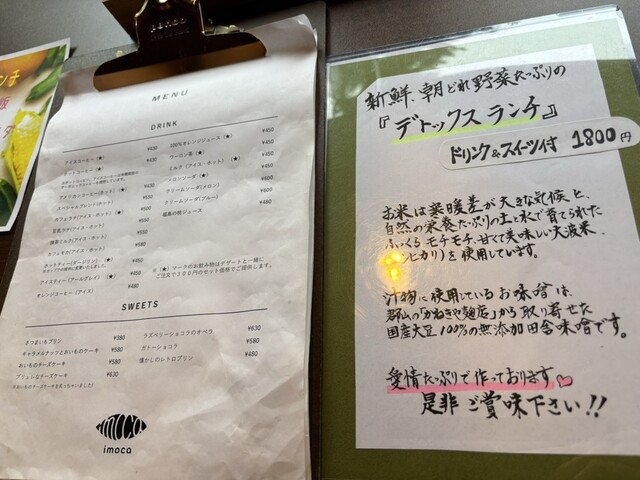 penco
MENU
DRINK
アイスコーヒー(★) ¥430
ホットコーヒー(★) ¥430
アメリカンコーヒー(ホット) ¥430
スペシャルブレンド(ホット)
カフェラテ(アイス・ホット)
豆乳ラテ(アイス・ホット)
抹茶ミルク(アイス・ホット) ¥550
カフェモカ(アイス・ホット) ¥580
ホットティー(ダージリン) (★) ¥450
アイスティー(アールグレイ) (★) ¥450
オレンジコーヒー(アイス)
100%オレンジジュース(★) ¥450
ウーロン茶(★) ¥450
ミルク(アイス・ホット) ¥450
メロンソーダ(★) ¥450
クリームソーダ(メロン) ¥600
クリームソーダ(ブルー) ¥600
福島の桃ジュース ¥480
※(★)マークのお飲み物はデザートと一緒に
ご注文で300円のセット価格でご提供します。
SWEETS
さつまいもプリン ¥380
キャラメルナッツとおいものケーキ ¥580
おいものチーズケーキ ¥580
ブリュレなチーズケーキ ¥630
ラズベリーショコラのオペラ ¥630
ガトーショコラ ¥580
懐かしのレトロプリン ¥480
imoca
imoca
新鮮、朝どれ野菜たっぷりの
『デトックスランチ』
ドリンク&スイーツ付 1800円
お米は寒暖差が大きな気候と、
自然の栄養たっぷりの土と水で育てられた
ふっくらモチモチ、甘くて美味しい大波米、
ヒカリ)を使用しています。
汁物に使用しているお味噌は、
郡山の「かねきや麹店」から取り寄せた
国産大豆100%の無添加田舎味噌です。
愛情たっぷりで作っております♡
是非ご賞味下さい!!